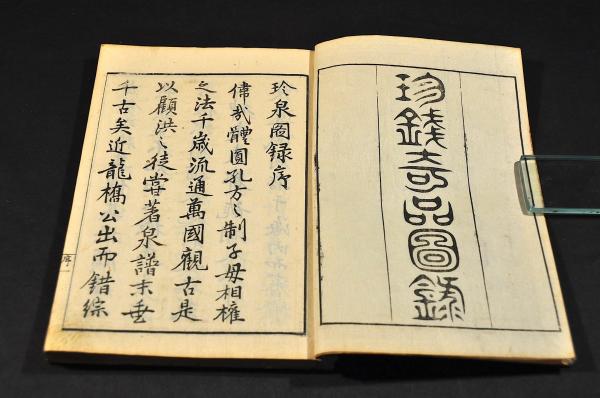 珍錢奇品圖錄
珍泉圖録序
偉哉體圓孔方之制子母相權
之法千歳流通萬國觀古是
以顧洪之徒嘗著泉譜末垂
千古矣近龍橋公出而錯綜
序一